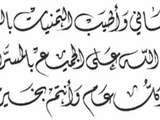 وأطيب التمنيات
الله على الجميع بالمسرات
كل عام وأنتم بخير